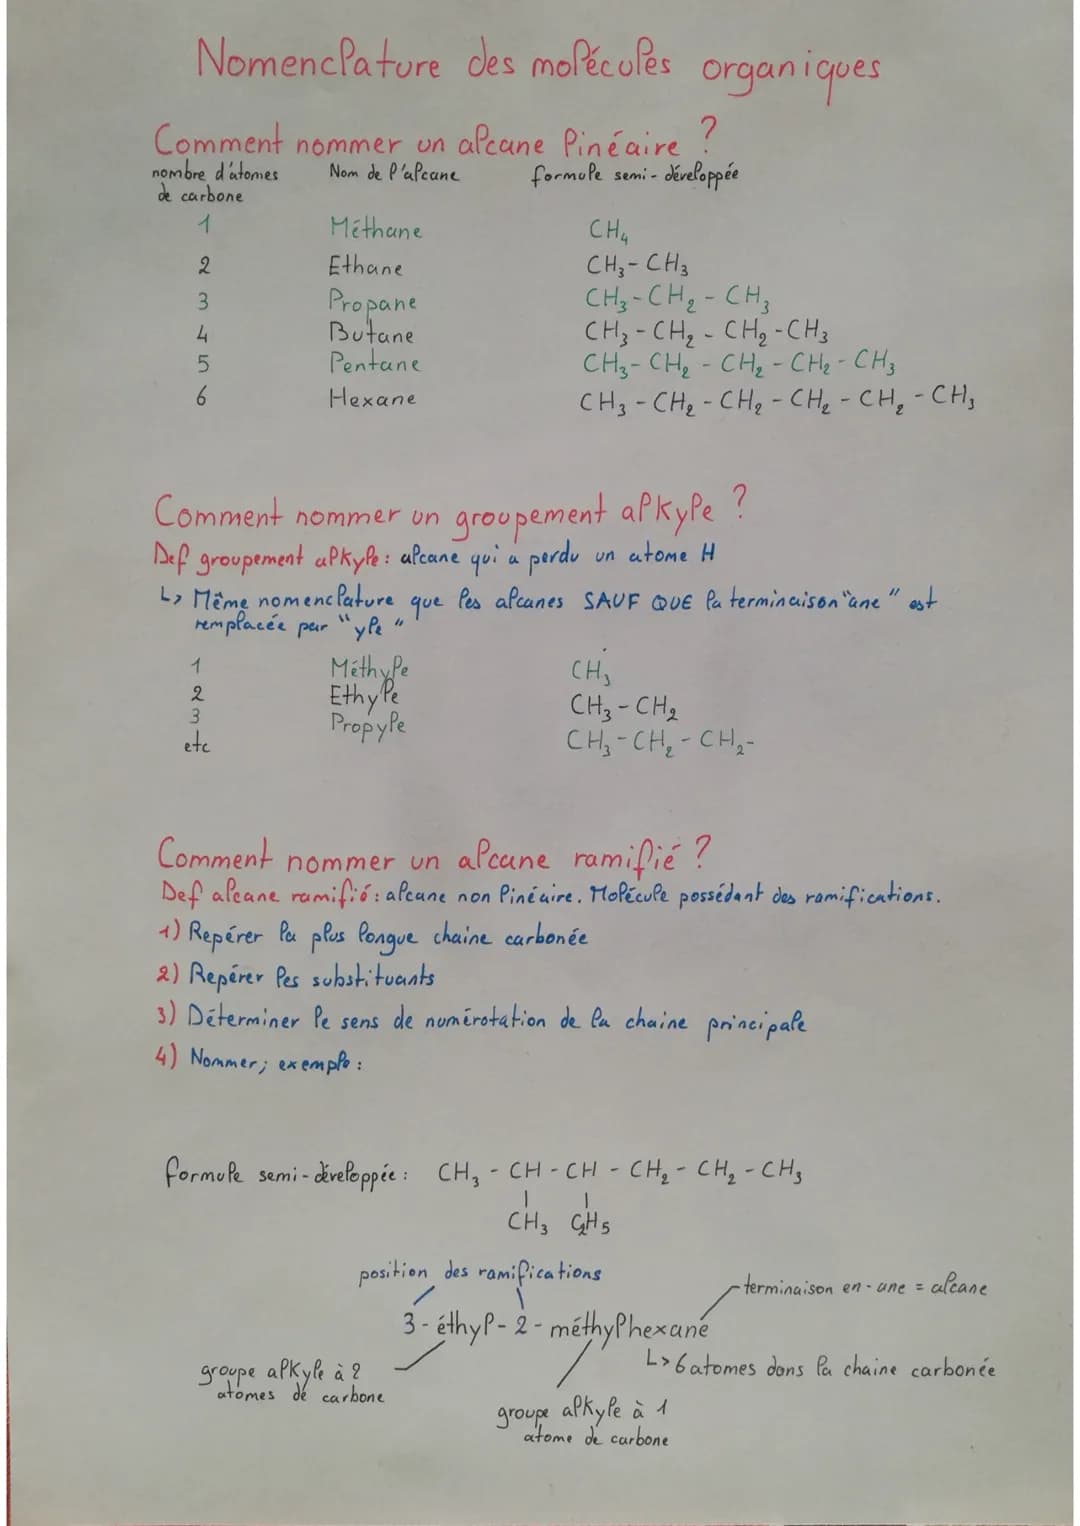 Nomenclature des molécules organiques
Comment nommer un alcane linéaire ?
nombre d'atomes de carbone	Nom de l'alcane	formule semi-développée
1	Méthane	CH₄
2	Ethane	CH₃-CH₃
3	Propane	CH₃-CH₂-CH₃
4	Butane	CH₃-CH₂-CH₂-CH₃
5	Pentane	CH₃-CH₂-CH₂-CH₂-CH₃
6	Hexane	CH₃-CH₂-CH₂-CH₂-CH₂-CH₃
Comment nommer un groupement alkyle ?
Def groupement alkyle : alcane qui a perdu un atome H
↳ Même nomenclature que les alcanes SAUF QUE la terminaison "ane" est
remplacée par "yle"
1	Méthyle	CH₃
2	Ethyle	CH₃-CH₂
3	Propyle	CH₃-CH₂-CH₂-
etc
Comment nommer un alcane ramifié ?
Def alcane ramifié : alcane non linéaire. Molécule possédant des ramifications.
1) Repérer la plus longue chaine carbonée
2) Repérer les substituants
3) Déterminer le sens de numérotation de la chaine principale
4) Nommer ; exemple :
formule semi-développée : CH₃-CH-CH-CH₂-CH₂-CH₃
CH₃ C₂H₅
position des ramifications
terminaison en -ane = alcane
3-éthyl-2-méthylhexane
↳ 6 atomes dans la chaine carbonée
groupe alkyle à 2
atomes de carbone
groupe alkyle à 1
atome de carbone